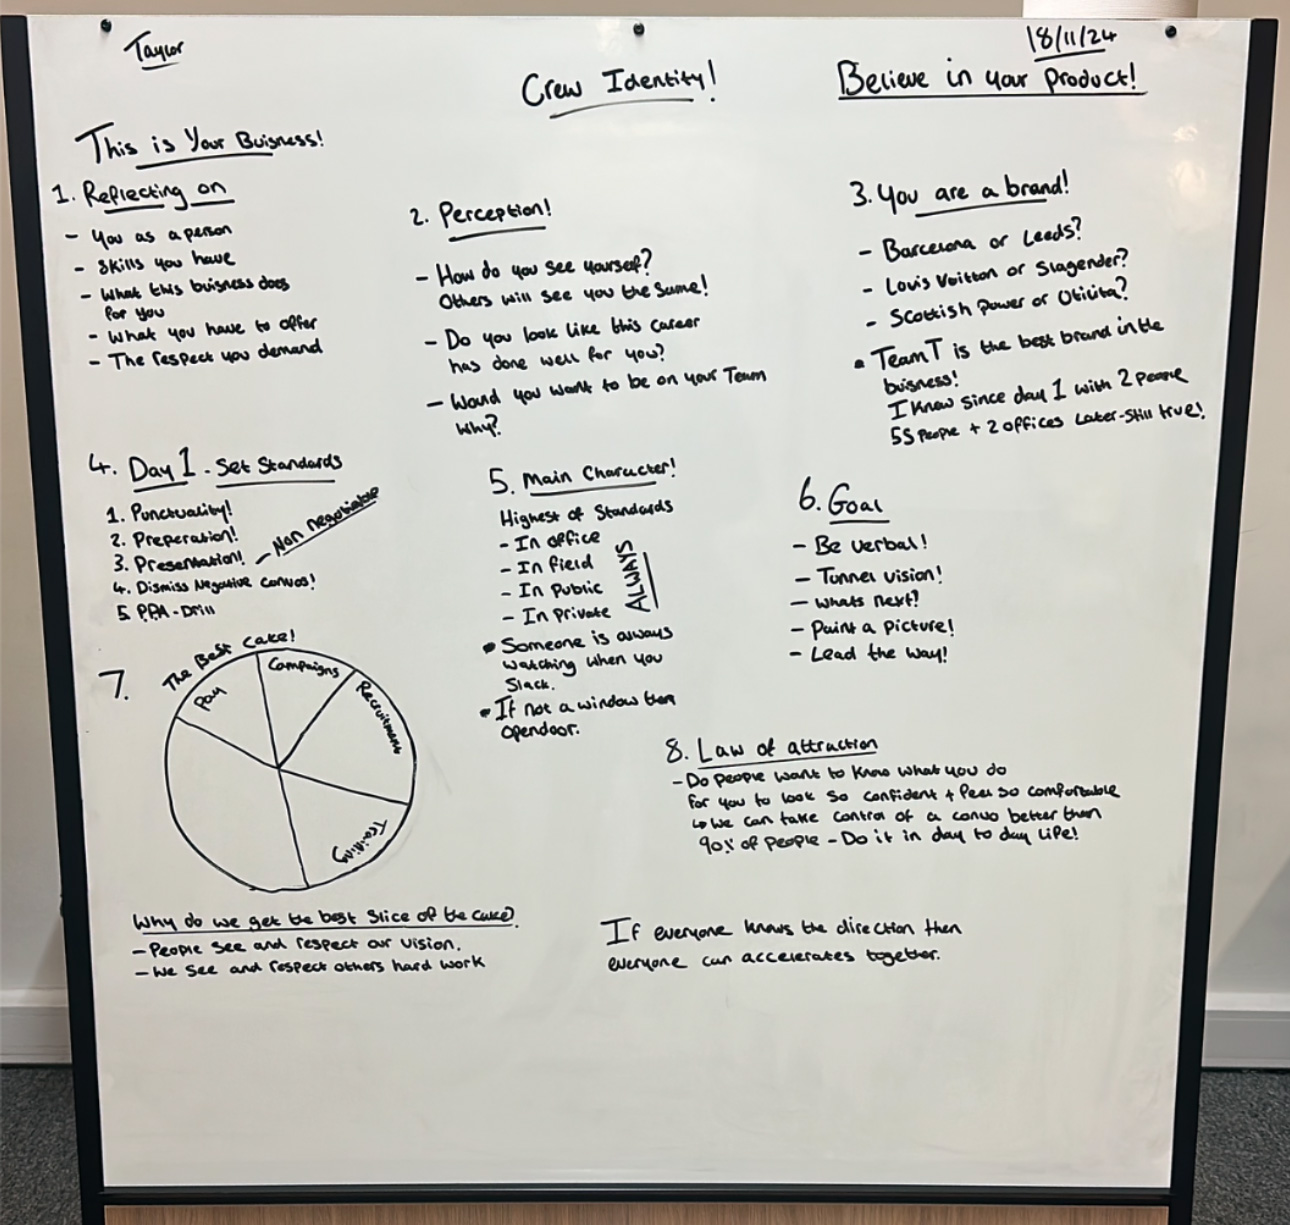 Taylor
18/11/24
Crew Identity!
Believe in your product!
This is Your Buisness!
1. Reflecting on
- You as a person
- Skills you have
- What this buisness does
for you
- What you have to offer
- The respect you demand
2. Perception!
- How do you see yourself?
Others will see you the same!
- Do you look like this career
has done well for you?
- Would you want to be on your Team
Why?
3. You are a brand!
- Barcelona or Leeds?
- Louis Voitton or Slagender?
- Scottish Power or Utilita?
• Team T is the best brand in the
buisness!
I knew since day 1 with 2 people
55 people + 2 offices Later-Still true!
4. Day 1 - Set Standards
1. Punctuality!
2. Preperation!
3. Presentation! - Non negotiable
4. Dismiss Negative convos!
5. PPA - Drill
5. Main Character!
Highest of Standards
- In office
- In field
- In Public
- In Private
ALWAYS
• Someone is always
watching when you
Slack.
• If not a window then
opendoor.
6. Goal
- Be verbal!
- Tunnel vision!
- Whats next?
- Paint a picture!
- Lead the way!
7.
The Best Cake!
Pay
Campaigns
Recruitment
Training
Why do we get the best slice of the cake?
- People see and respect our vision.
- We see and respect others hard work
8. Law of attraction
- Do people want to know what you do
for you to look so confident + feel so comfortable
↳ We can take control of a convo better than
90% of people - Do it in day to day life!
If everyone knows the direction then
everyone can accelerates together.